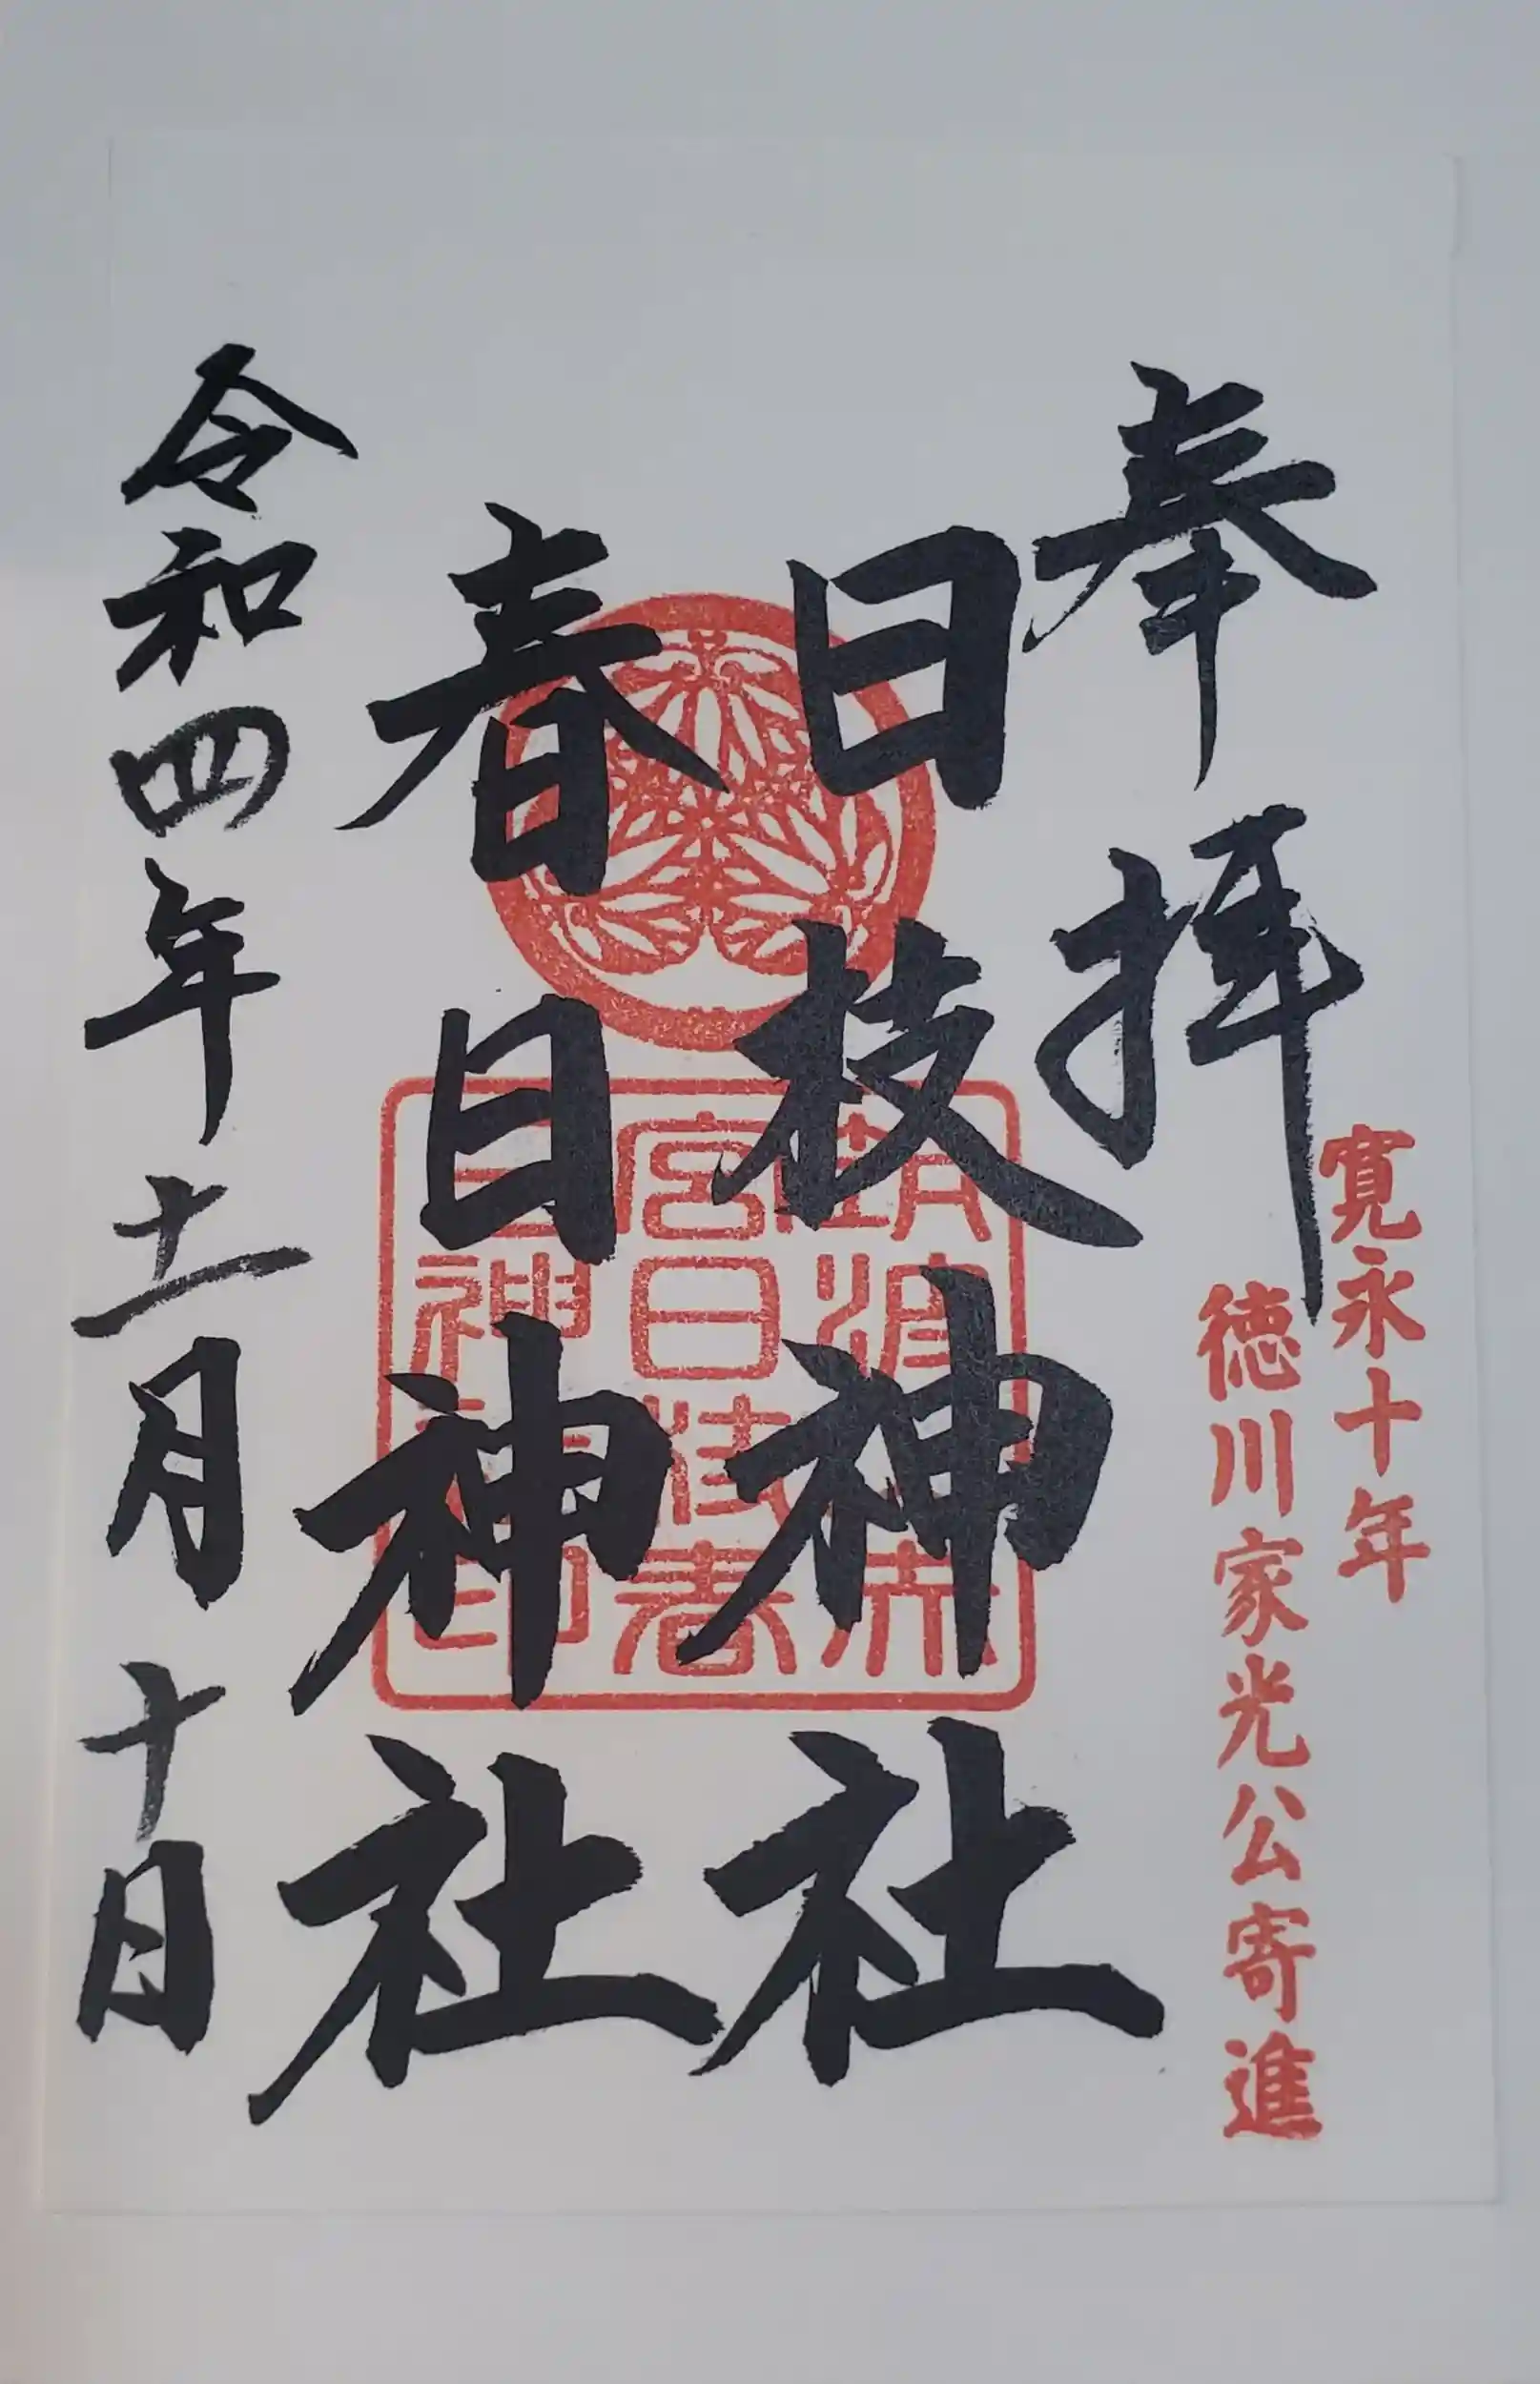 奉拝
寛永十年
徳川家光公寄進
日枝神社
春日神社
令和四年十一月十日